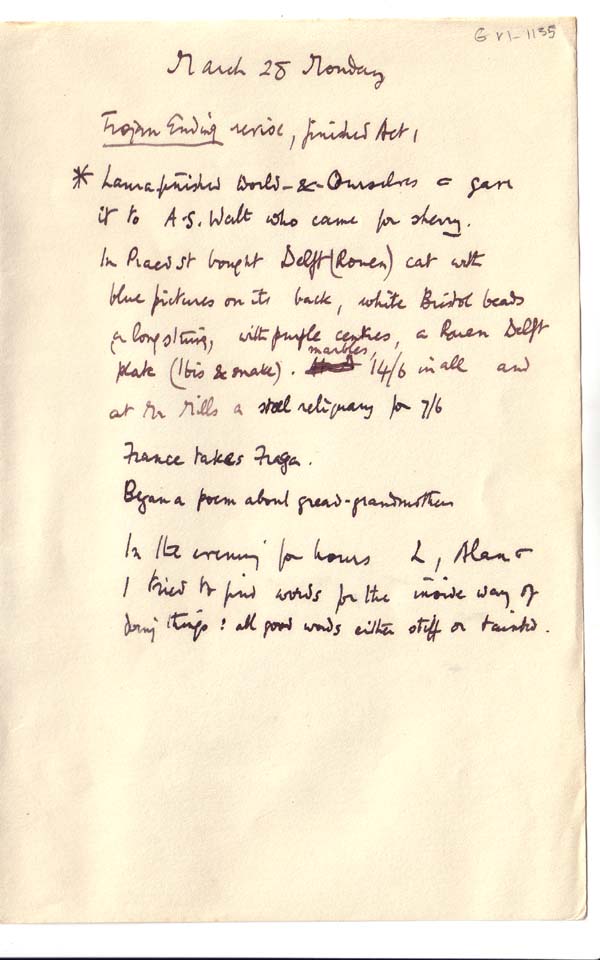 G VI-1135
March 28 Monday
Trojan Ending revise, finished Act 1
* Laura finished World-&-Ourselves & gave
it to A.S. Watt who came for sherry.
In Praed st bought Delft (Rouen) cat with
blue pictures on its back, white Bristol beads
a long string, with purple centres, a Rouen Delft
marbles,
plate (Ibis & snake). 14/6 in all and
at Mr Mills a steel reliquary for 7/6
France takes Fraga.
Began a poem about great-grandmothers
In the evening for hours L, Alan &
I tried to find words for the inside way of
doing things: all good words either stiff or tainted.